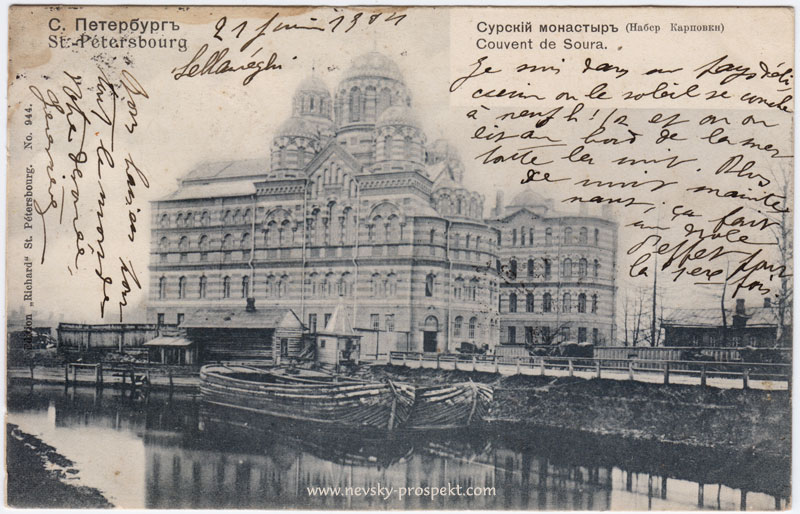 С. Петербургъ
St. Pétersbourg
21 juin 1904
Sellanéghi
Сурскій монастыръ (Набер Карповки)
Couvent de Soura.
Je suis dans un pays déli
cieux où le soleil se couche
à neuf h. 1/2 et on
lit au bord de la mer
toute la nuit. Plus
de nuit mainte
nant, ça fait
un drôle
d'effet pour
la 1ère fois.
Bons baisers
tout le monde
Votre
Geneviève
Edition „Richard“ St. Pétersbourg. No. 944.
www.nevsky-prospekt.com